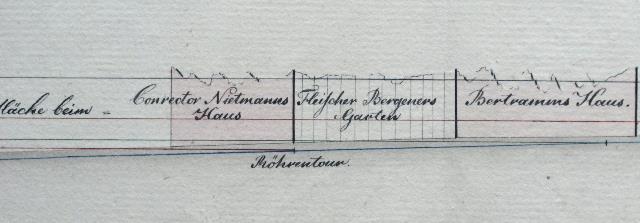 fläche beim
Conrector Nietmanns
Haus
Fleischer Bergeners
Garten
Bertramms Haus.
Röhrentour.